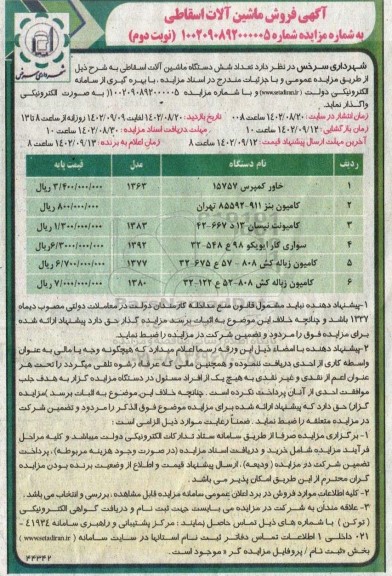 آگهی فروش ماشین آلات اسقاطی
به شماره مزایده شماره ۱۰۰۲۰۹۰۸۹۲۰۰۰۰۰۵ (نوبت دوم)
شهرداری سرخس
شهرداری سرخس در نظر دارد تعداد شش دستگاه ماشین آلات اسقاطی به شرح ذیل
از طریق مزایده عمومی و با جزئیات مندرج در اسناد مزایده ، با بهره گیری از سامانه
الکترونیکی دولت (www.setadiran.ir) و با شماره مزایده ۱۰۰۲۰۹۰۸۹۲۰۰۰۰۰۵ به صورت الکترونیکی
واگذار نماید.
زمان انتشار در سایت : ۱۴۰۲/۰۸/۲۰ ساعت ۸:۰۰ تاریخ بازدید: ۱۴۰۲/۰۸/۲۰ لغایت ۱۴۰۲/۰۹/۰۹ روزانه از ساعت ۸ تا ۱۳
زمان بازگشایی : ۱۴۰۲/۰۹/۱۳ ساعت ۱۰ مهلت دریافت اسناد مزایده : ۱۴۰۲/۰۸/۳۰ ساعت ۱۰
آخرین مهلت ارسال پیشنهاد قیمت : ۱۴۰۲/۰۹/۱۲ ساعت ۸ زمان اعلام به برنده : ۱۴۰۲/۰۹/۱۳ ساعت ۸
ردیف نام دستگاه مدل قیمت پایه
۱ خاور کمپرس ۱۵۷۵۷ ۱۳۶۳ ۳/۴۰۰/۰۰۰/۰۰۰ ریال
۲ کامیون بنز ۹۱۱-۸۵۵۹۲ تهران ۸۰۰/۰۰۰/۰۰۰ ریال
۳ کامیونت نیسان ۱۳ د ۶۶۷-۴۲ ۱۳۸۳ ۱/۳۰۰/۰۰۰/۰۰۰ ریال
۴ سواری کار ایویکو ۹۸ ع ۵۴۸-۳۲ ۱۳۹۲ ۶/۳۰۰/۰۰۰/۰۰۰ ریال
۵ کامیون زباله کش ۸۰۸ - ۵۷ ع ۶۷۵-۳۲ ۱۳۷۷ ۶/۷۰۰/۰۰۰/۰۰۰ ریال
۶ کامیون زباله کش ۸۰۸-۵۲ ع ۱۲۲-۳۲ ۱۳۸۰ ۷/۰۰۰/۰۰۰/۰۰۰ ریال
۱-پیشنهاد دهنده نباید مشمول قانون منع مداخله کارمندان دولت در معاملات دولتی مصوب دیماه
۱۳۳۷ باشد و چنانچه خلاف این موضوع به اثبات برسد مزایده گذار حق دارد پیشنهاد ارائه شده
برای مزایده فوق را مردود و تضمین شرکت در مزایده را ضبط نماید.
۲-پیشنهاد دهنده با امضاء ذیل این ورقه رسما اعلام میدارد که هیچگونه وجه یا مالی به عنوان
واسطه کاری از احدی دریافت ننموده و همچنین مالی که عرفا رشوه تلقی میگردد را تحت هر
عنوان اعم از نقدی و غیر نقدی به هیچ یک از افراد مسئول در دستگاه مزایده گزار به هدف جلب
موافقت احدی از آنان پرداخت نکرده است . چنانچه خلاف این موضوع به اثبات برسد (مزایده
گزار) حق دارد که پیشنهاد ارائه شده برای مزایده موضوع فوق الذکر را مردود و تضمین شرکت
در مزایده متعلقه را ضبط نماید. ضمناً رعایت موارد ذیل الزامی است :
۱- برگزاری مزایده صرفا از طریق سامانه ستاد تدارکات الکترونیکی دولت میباشد و کلیه مراحل
فرآیند مزایده شامل خرید و دریافت اسناد مزایده (در صورت وجود هزینه مربوطه)، پرداخت
تضمین شرکت در مزایده (ودیعه)، ارسال پیشنهاد قیمت و اطلاع از وضعیت برنده بودن مزایده
گران محترم از این طریق امکان پذیر می باشد .
۲- کلیه اطلاعات موارد فروش در برد اعلان عمومی سامانه مزایده قابل مشاهده ، بررسی و انتخاب می باشد .
۳- علاقه مندان به شرکت در مزایده می بایست جهت ثبت نام و دریافت گواهی الکترونیکی
( توکن ) با شماره های ذیل تماس حاصل نمایند : مرکز پشتیبانی و راهبری سامانه ۴۱۹۳۴ -
۰۲۱ داخلی ۱ اطلاعات تماس دفاتر ثبت نام استانها در سایت سامانه ( www.setadiran.ir )
بخش «ثبت نام / پروفایل مزایده گر » موجود است .
۴۳۳۴۲